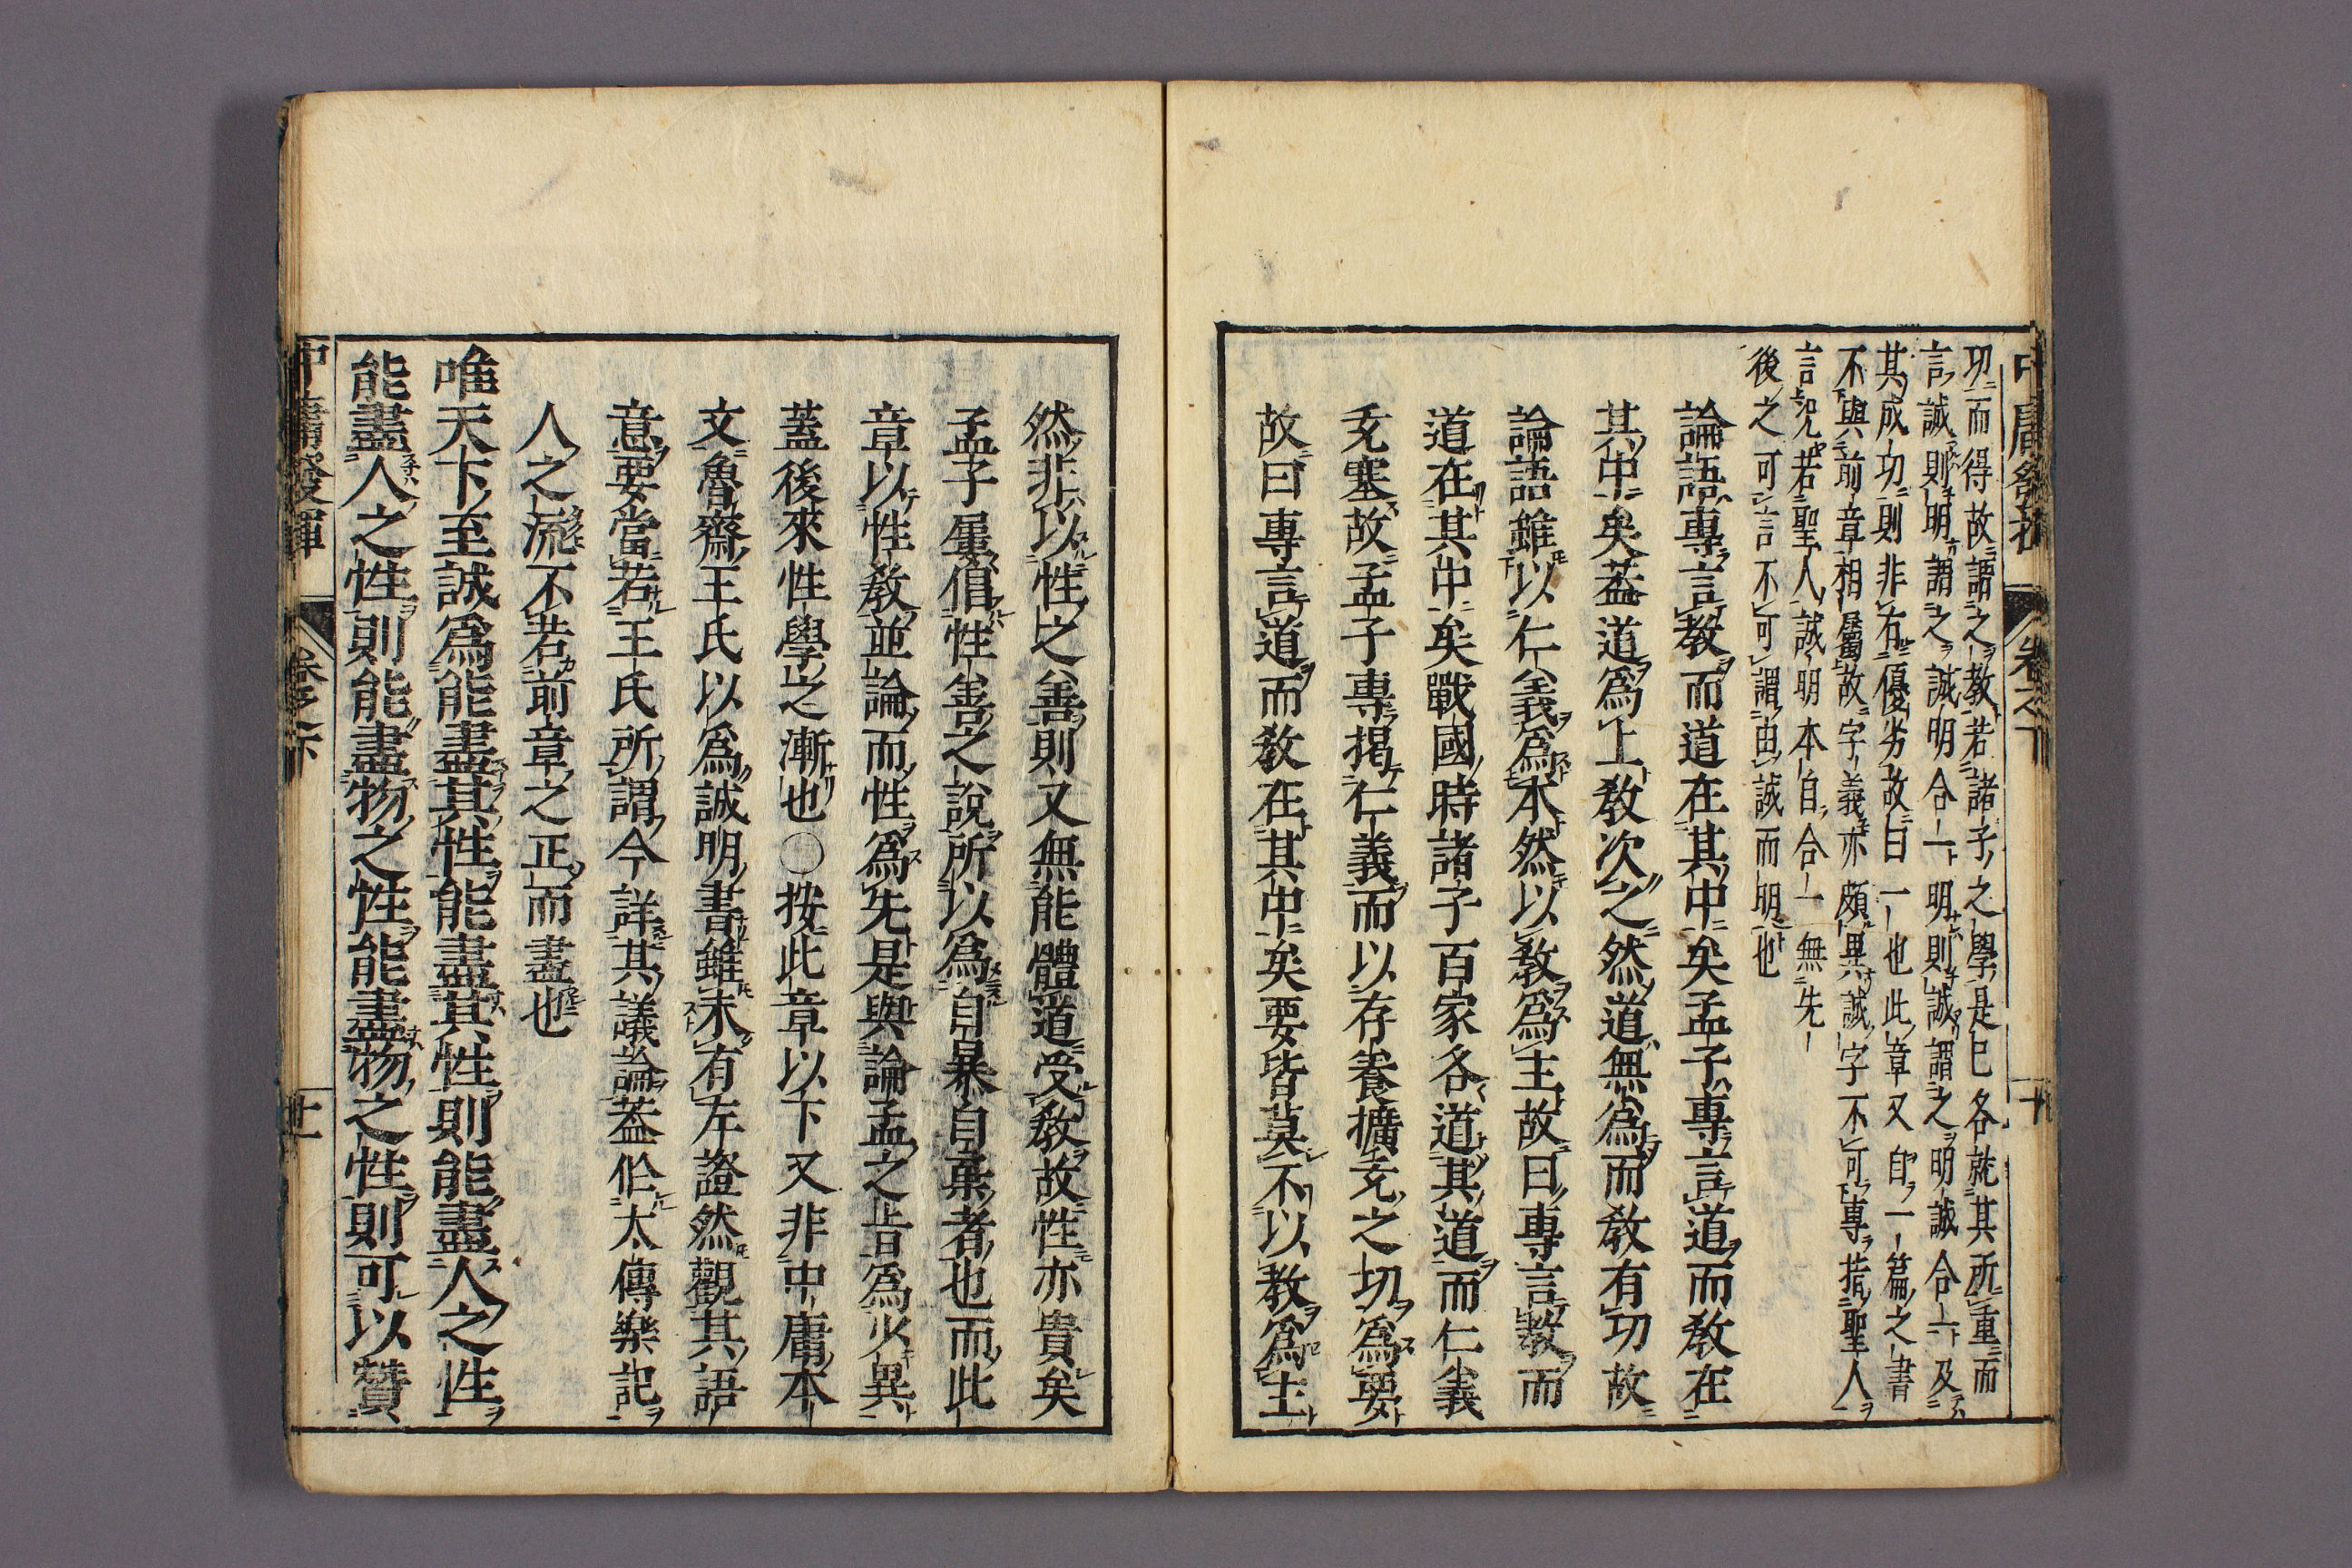 中庸發揮 卷之下 十
功而得故謂之教若諸子之學是已各就其所重而
言誠則明謂之誠明合一明則誠謂之明誠合一及
其成功則非有優劣故曰一也此章又自一篇之書
不與前章相屬故字義亦頗異誠字不可專指聖人
言況若聖人誠明本自合一無先
後之可言不可謂由誠而明也
論語專言教而道在其中矣孟子專言道而教在
其中矣蓋道爲上教次之然道無爲而教有功故
論語雖以仁義爲本然以教爲主故曰專言教而
道在其中矣戰國時諸子百家各道其道而仁義
充塞故孟子專揭仁義而以存養擴充之切爲要
故曰專言道而教在其中矣要皆莫不以教爲主
然非以性之善則又無能體道受教故性亦貴矣
孟子屢倡性善之說所以爲自暴自棄者也而此
章以性教並論而性爲先是與論孟之旨爲少異
蓋後來性學之漸也○按此章以下又非中庸本
文魯齋王氏以爲誠明書雖未有左證然觀其語
意要當若王氏所謂今詳其議論蓋似大傳樂記
人之流不若前章之正而盡也
唯天下至誠爲能盡其性能盡其性則能盡人之性
能盡人之性則能盡物之性能盡物之性則可以贊
中庸發揮 卷之下 十一